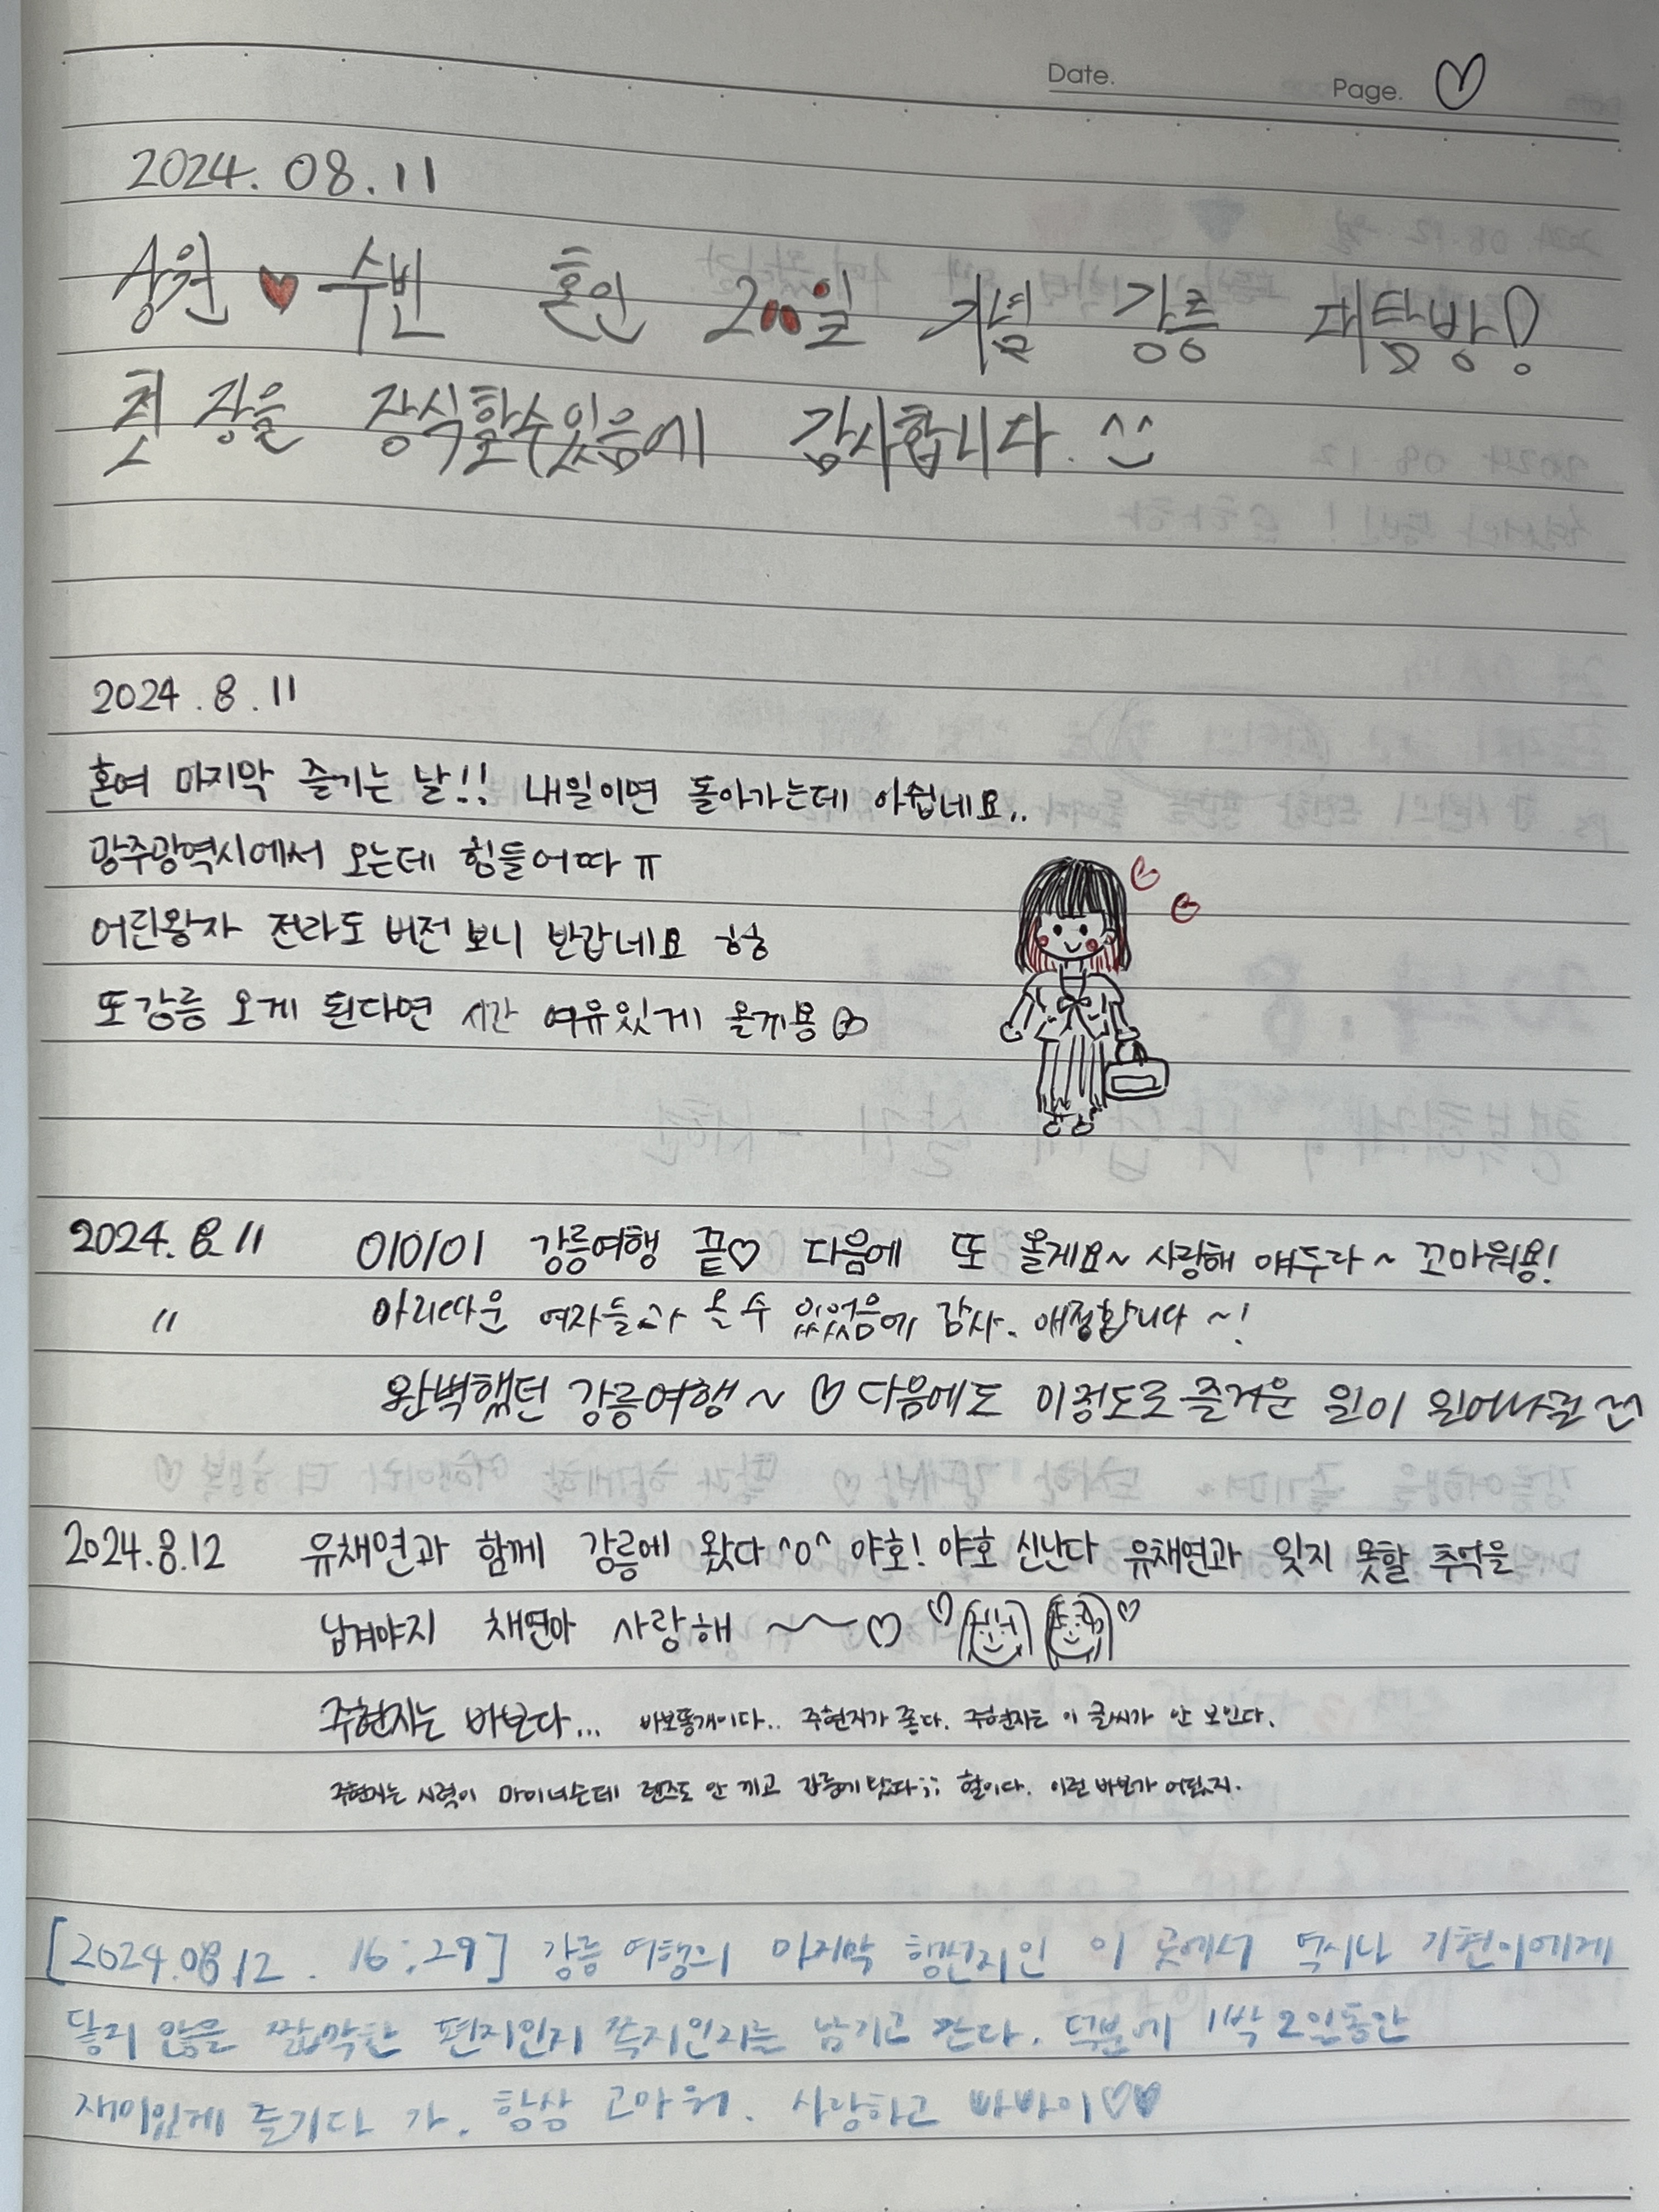 Date.
Page. ♡
2024. 08. 11
상원 ♥ 수빈 혼인 200일 기념 강릉 재탐방!
첫 장을 장식할수있음에 감사합니다. ^^
2024. 8. 11
혼여 마지막 즐기는 날!! 내일이면 돌아가는데 아쉽네요..
광주광역시에서 오는데 힘들어따 ㅠ
어린왕자 전라도 버전 보니 반갑네요 ㅎㅎ
또 강릉 오게 된다면 시간 여유있게 올게용
2024. 8. 11 010101 강릉여행 끝♡ 다음에 또 올게요~ 사랑해 얘두라~ 꼬마워용!
〃 아리따운 여자들과 올 수 있었음에 감사. 애정합니다 ~!
완벽했던 강릉여행~ ♡ 다음에도 이정도로 즐거운 일이 일어나길
2024. 8. 12 유채연과 함께 강릉에 왔다 ^o^ 야호! 야호 신난다 유채연과 잊지 못할 추억을
남겨야지 채연아 사랑해 ~~♡
주현지는 바보다... 바보똥개이다.. 주현지가 좋다. 주현지는 이 글씨가 안 보인다.
주현지는 시력이 마이너슨데 렌즈도 안 끼고 강릉에 왔다;; 헐이다. 이런 바보가 어딨지.
[2024.08.12. 16:29] 강릉 여행의 마지막 행선지인 이 곳에서 역시나 기현이에게
닿지 않을 짤막한 편지인지 쪽지인지를 남기고 간다. 덕분에 1박 2일동안
재미있게 즐기다 가. 항상 고마워. 사랑하고 빠빠이♡♥